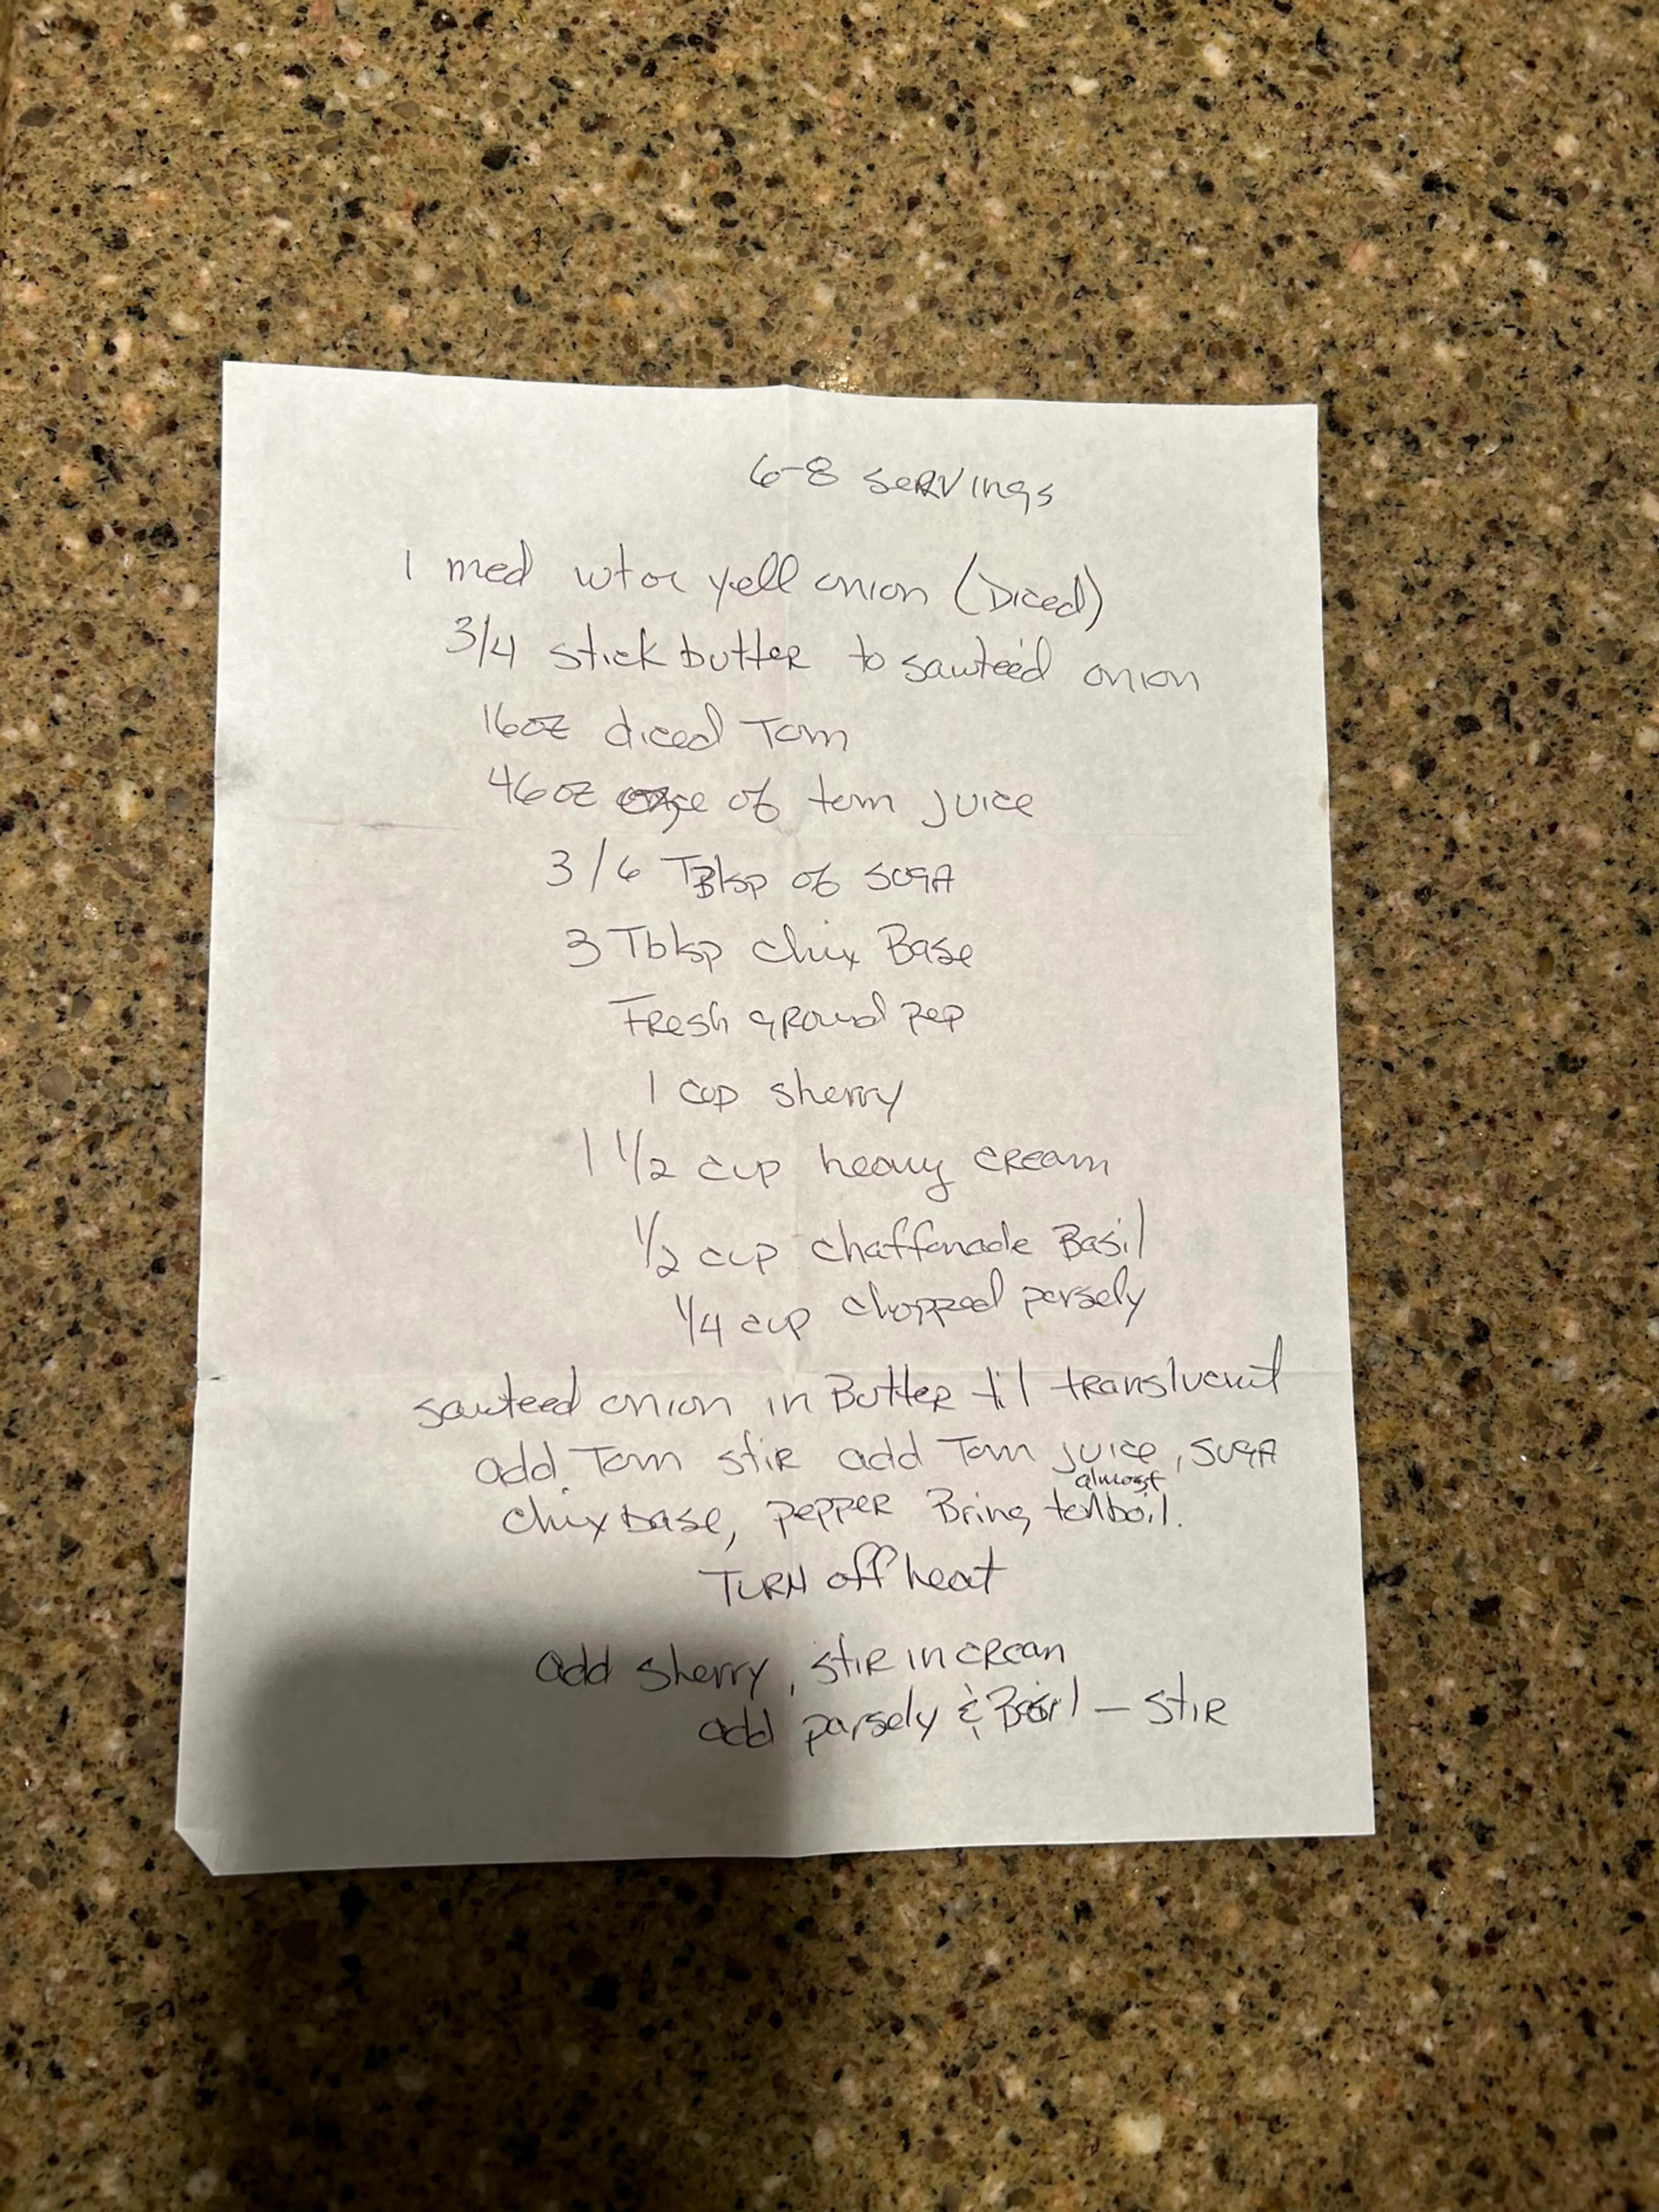 6-8 servings
1 med wt or yell onion (Diced)
3/4 stick butter to sauteéd onion
16oz diced Tom
46oz of tom juice
3/6 TBlsp of suga
3 Tblsp chix Base
Fresh ground pep
1 cup sherry
1 1/2 cup heavy cream
1/2 cup chaffonade Basil
1/4 cup chopped parsely
sauteed onion in Butter til translucent
add Tom stir add Tom juice, suga
almost
chix base, pepper Bring to boil.
TURN off heat
add sherry, stir in cream
add parsely & Basil - stir